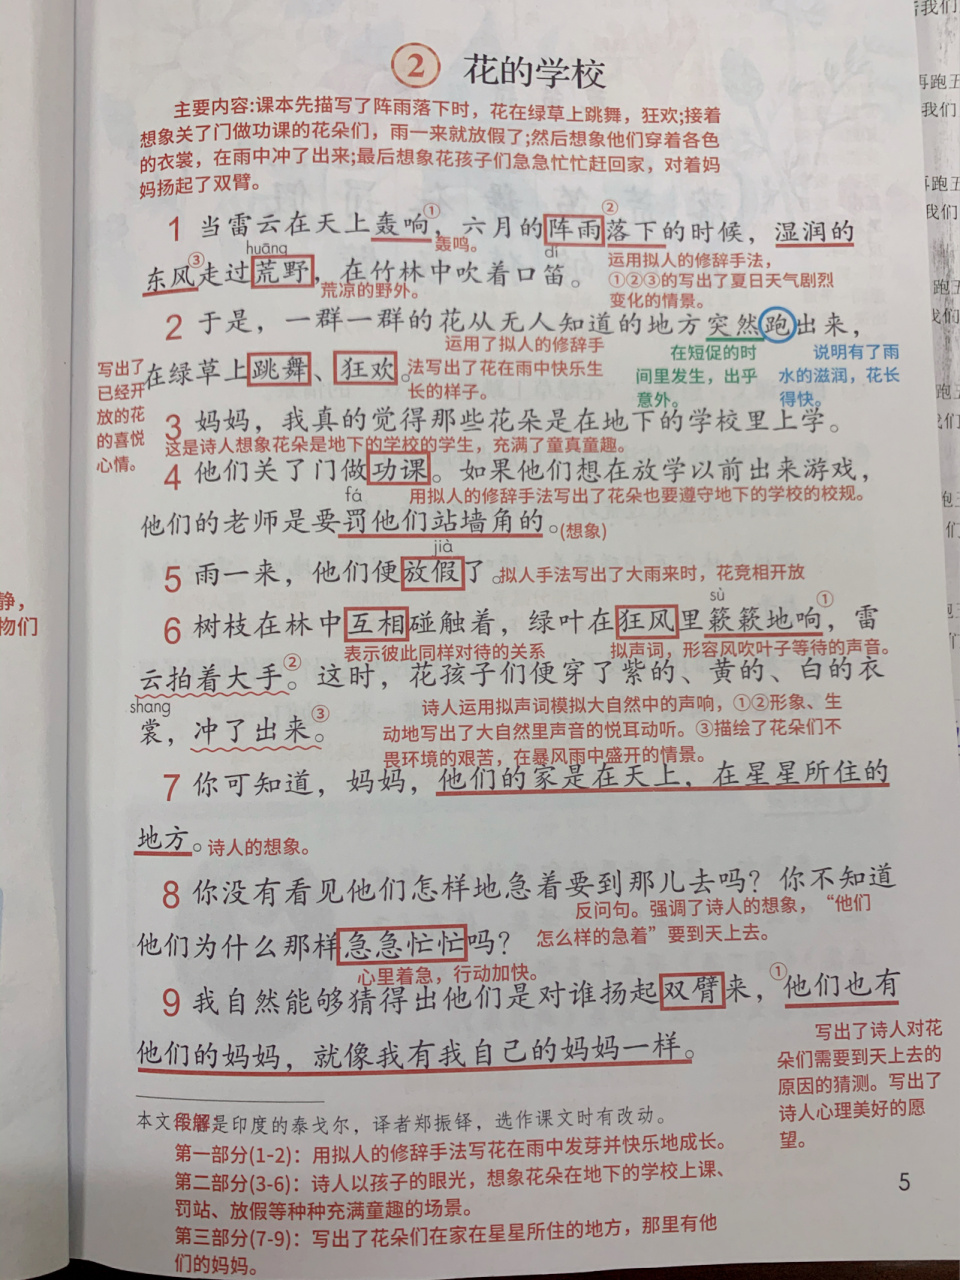 ② 花的学校
主要内容:课本先描写了阵雨落下时，花在绿草上跳舞，狂欢;接着
想象关了门做功课的花朵们，雨一来就放假了;然后想象他们穿着各色
的衣裳，在雨中冲了出来;最后想象花孩子们急急忙忙赶回家，对着妈
妈扬起了双臂。
1 当雷云在天上轰响①，六月的阵雨②落下的时候，湿润的
轰鸣。
运用拟人的修辞手法，
①②③的写出了夏日天气剧烈
变化的情景。
huāng
dí
东风③走过荒野，在竹林中吹着口笛。
荒凉的野外。
2 于是，一群一群的花从无人知道的地方突然跑出来，
运用了拟人的修辞手
法写出了花在雨中快乐生
长的样子。
在短促的时
间里发生，出乎
意外。
说明有了雨
水的滋润，花长
得快。
写出了
已经开
放的花
的喜悦
心情。
在绿草上跳舞、狂欢。
3 妈妈，我真的觉得那些花朵是在地下的学校里上学。
这是诗人想象花朵是地下的学校的学生，充满了童真童趣。
4 他们关了门做功课。如果他们想在放学以前出来游戏，
用拟人的修辞手法写出了花朵也要遵守地下的学校的校规。
fá
他们的老师是要罚他们站墙角的。(想象)
jià
5 雨一来，他们便放假了。拟人手法写出了大雨来时，花竞相开放
sù
6 树枝在林中互相碰触着，绿叶在狂风里簌簌地响①，雷
表示彼此同样对待的关系
拟声词，形容风吹叶子等待的声音。
云拍着大手②。这时，花孩子们便穿了紫的、黄的、白的衣
shang
裳，冲了出来③。
诗人运用拟声词模拟大自然中的声响，①②形象、生
动地写出了大自然里声音的悦耳动听。③描绘了花朵们不
畏环境的艰苦，在暴风雨中盛开的情景。
7 你可知道，妈妈，他们的家是在天上，在星星所住的
地方。诗人的想象。
8 你没有看见他们怎样地急着要到那儿去吗？你不知道
反问句。强调了诗人的想象，“他们
怎么样的急着”要到天上去。
他们为什么那样急急忙忙吗？
心里着急，行动加快。
9 我自然能够猜得出他们是对谁扬起双臂来，①他们也有
他们的妈妈，就像我有我自己的妈妈一样。
写出了诗人对花
朵们需要到天上去的
原因的猜测。写出了
诗人心理美好的愿
望。
本文 是印度的泰戈尔，译者郑振铎，选作课文时有改动。
段解
第一部分(1-2)：用拟人的修辞手法写花在雨中发芽并快乐地成长。
第二部分(3-6)：诗人以孩子的眼光，想象花朵在地下的学校上课、
罚站、放假等种种充满童趣的场景。
第三部分(7-9)：写出了花朵们在家在星星所住的地方，那里有他
们的妈妈。
5
静，
物们
我们
再跑五
我们
再跑五
我们